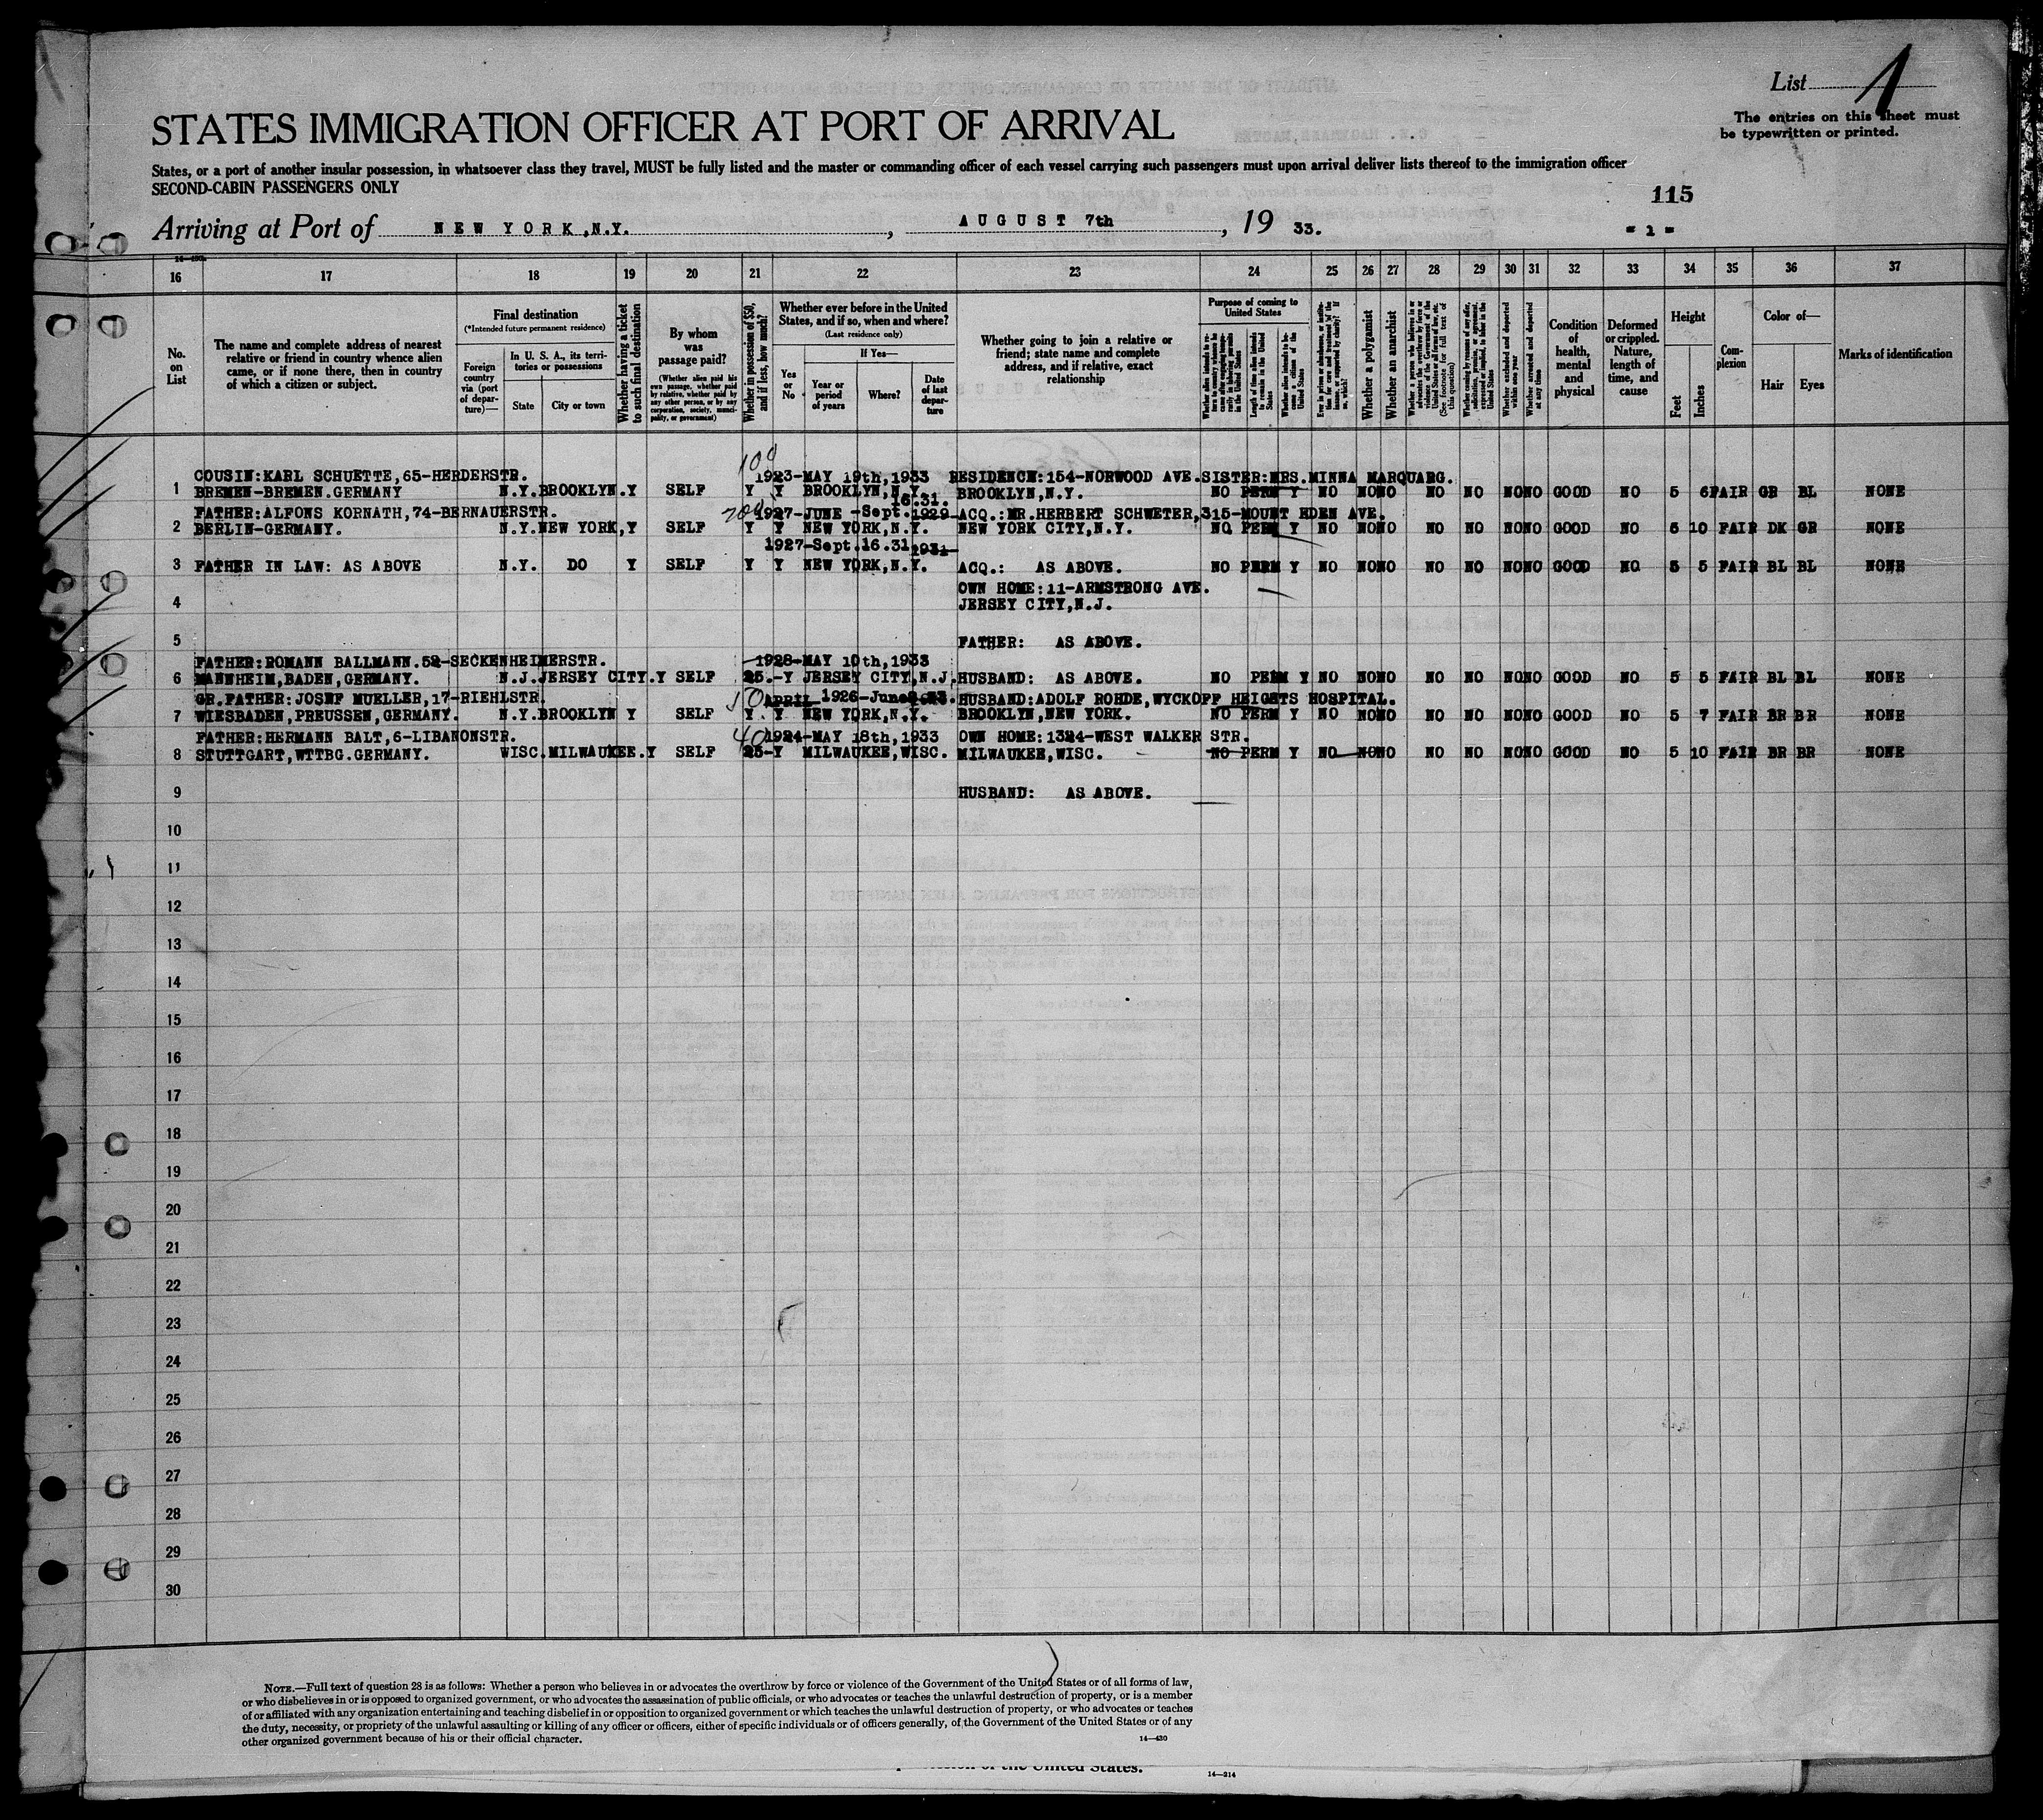 List 1
The entries on this sheet must
be typewritten or printed.
STATES IMMIGRATION OFFICER AT PORT OF ARRIVAL
States, or a port of another insular possession, in whatsoever class they travel, MUST be fully listed and the master or commanding officer of each vessel carrying such passengers must upon arrival deliver lists thereof to the immigration officer
SECOND-CABIN PASSENGERS ONLY
115
Arriving at Port of NEW YORK,N.Y. , AUGUST 7th , 19 33.
- 1 -
16 17 18 19 20 21 22 23 24 25 26 27 28 29 30 31 32 33 34 35 36 37
No. on List
The name and complete address of nearest
relative or friend in country whence alien
came, or if none there, then in country
of which a citizen or subject.
Final destination
(*Intended future permanent residence)
Foreign country via (port of departure)—
In U. S. A., its territories or possessions
State
City or town
Whether having a ticket to such final destination
By whom was passage paid?
(Whether alien paid his own passage, whether paid by relative, whether paid by any other person, or by any corporation, society, municipality, or government)
Whether in possession of $50, and if less, how much?
Whether ever before in the United
States, and if so, when and where?
(Last residence only)
If Yes—
Yes or No
Year or period of years
Where?
Date of last departure
Whether going to join a relative or
friend; state name and complete
address, and if relative, exact
relationship
Purpose of coming to United States
Length of time alien intends to remain in the United States
Whether alien intends to become a citizen of the United States
Whether a polygamist
Whether an anarchist
Whether excluded and deported within one year
Whether arrested and deported at any time
Condition of health, mental and physical
Deformed or crippled. Nature, length of time, and cause
Height
Feet
Inches
Complexion
Color of—
Hair
Eyes
Marks of identification
100
COUSIN:KARL SCHUETTE,65-HERDERSTR. 1923-MAY 19th,1933 RESIDENCE:154-NORWOOD AVE.SISTER:MRS.MINNA MARQUARG.
1 BREMEN-BREMEN.GERMANY N.Y.BROOKLYN.Y SELF Y Y BROOKLYN,N.Y. BROOKLYN,N.Y. NO PERM Y NO NONO NO NO NONO GOOD NO 5 6 FAIR GR BL NONE
16.31.
FATHER:ALFONS KORNATH,74-BERNAUERSTR. 200 1927-JUNE -Sept.1929-ACQ.:MR.HERBERT SCHWETER,315-MOUNT EDEN AVE.
2 BERLIN-GERMANY. N.Y.NEW YORK,Y SELF Y Y NEW YORK,N.Y. NEW YORK CITY,N.Y. NO PERM Y NO NONO NO NO NONO GOOD NO 5 10 FAIR DK GR NONE
1927-Sept.16.31 1931-
3 FATHER IN LAW: AS ABOVE N.Y. DO Y SELF Y Y NEW YORK,N.Y. ACQ.: AS ABOVE. NO PERM Y NO NONO NO NO NONO GOOD NO 5 5 FAIR BL BL NONE
OWN HOME:11-ARMSTRONG AVE.
4 JERSEY CITY,N.J.
5 FATHER: AS ABOVE.
FATHER:ROMANN BALLMANN.52-SECKENHEIMERSTR. 1928-MAY 10th,1933
6 MANNHEIM,BADEN,GERMANY. N.J.JERSEY CITY.Y SELF 25.-Y JERSEY CITY,N.J.HUSBAND: AS ABOVE. NO PERM Y NO NONO NO NO NONO GOOD NO 5 5 FAIR BL BL NONE
GR.FATHER:JOSEF MUELLER,17-RIEHLSTR. 10 APRIL 1926-June HUSBAND:ADOLF ROHDE,WYCKOFF HEIGHTS HOSPITAL.
7 WIESBADEN,PREUSSEN,GERMANY. N.Y.BROOKLYN Y SELF Y. Y NEW YORK,N.Y. BROOKLYN,NEW YORK. NO PERM Y NO NONO NO NO NONO GOOD NO 5 7 FAIR BR BR NONE
FATHER:HERMANN BALT,6-LIBANONSTR. 40 1924-MAY 18th,1933 OWN HOME:1324-WEST WALKER STR.
8 STUTTGART,WTTBG.GERMANY. WISC.MILWAUKEE.Y SELF 25-Y MILWAUKEE,WISC. MILWAUKEE,WISC. - NO PERM Y NO NONO NO NO NONO GOOD NO 5 10 FAIR BR BR NONE
9 HUSBAND: AS ABOVE.
10
11
12
13
14
15
16
17
18
19
20
21
22
23
24
25
26
27
28
29
30
NOTE.—Full text of question 28 is as follows: Whether a person who believes in or advocates the overthrow by force or violence of the Government of the United States or of all forms of law,
or who disbelieves in or is opposed to organized government, or who advocates the assassination of public officials, or who advocates or teaches the unlawful destruction of property, or is a member
of or affiliated with any organization entertaining and teaching disbelief in or opposition to organized government or which teaches the unlawful destruction of property, or who advocates or teaches
the duty, necessity, or propriety of the unlawful assaulting or killing of any officer or officers, either of specific individuals or of officers generally, of the Government of the United States or of any
other organized government because of his or their official character.
14—430
of the United States.
14—214